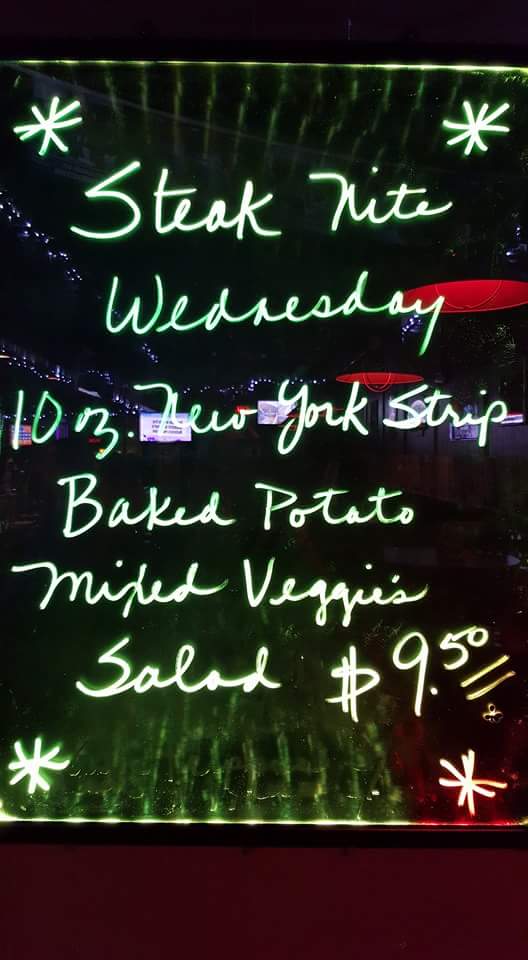 Steak Nite
Wednesday
10 oz. New York Strip
Baked Potato
Mixed Veggie's
Salad $9.50